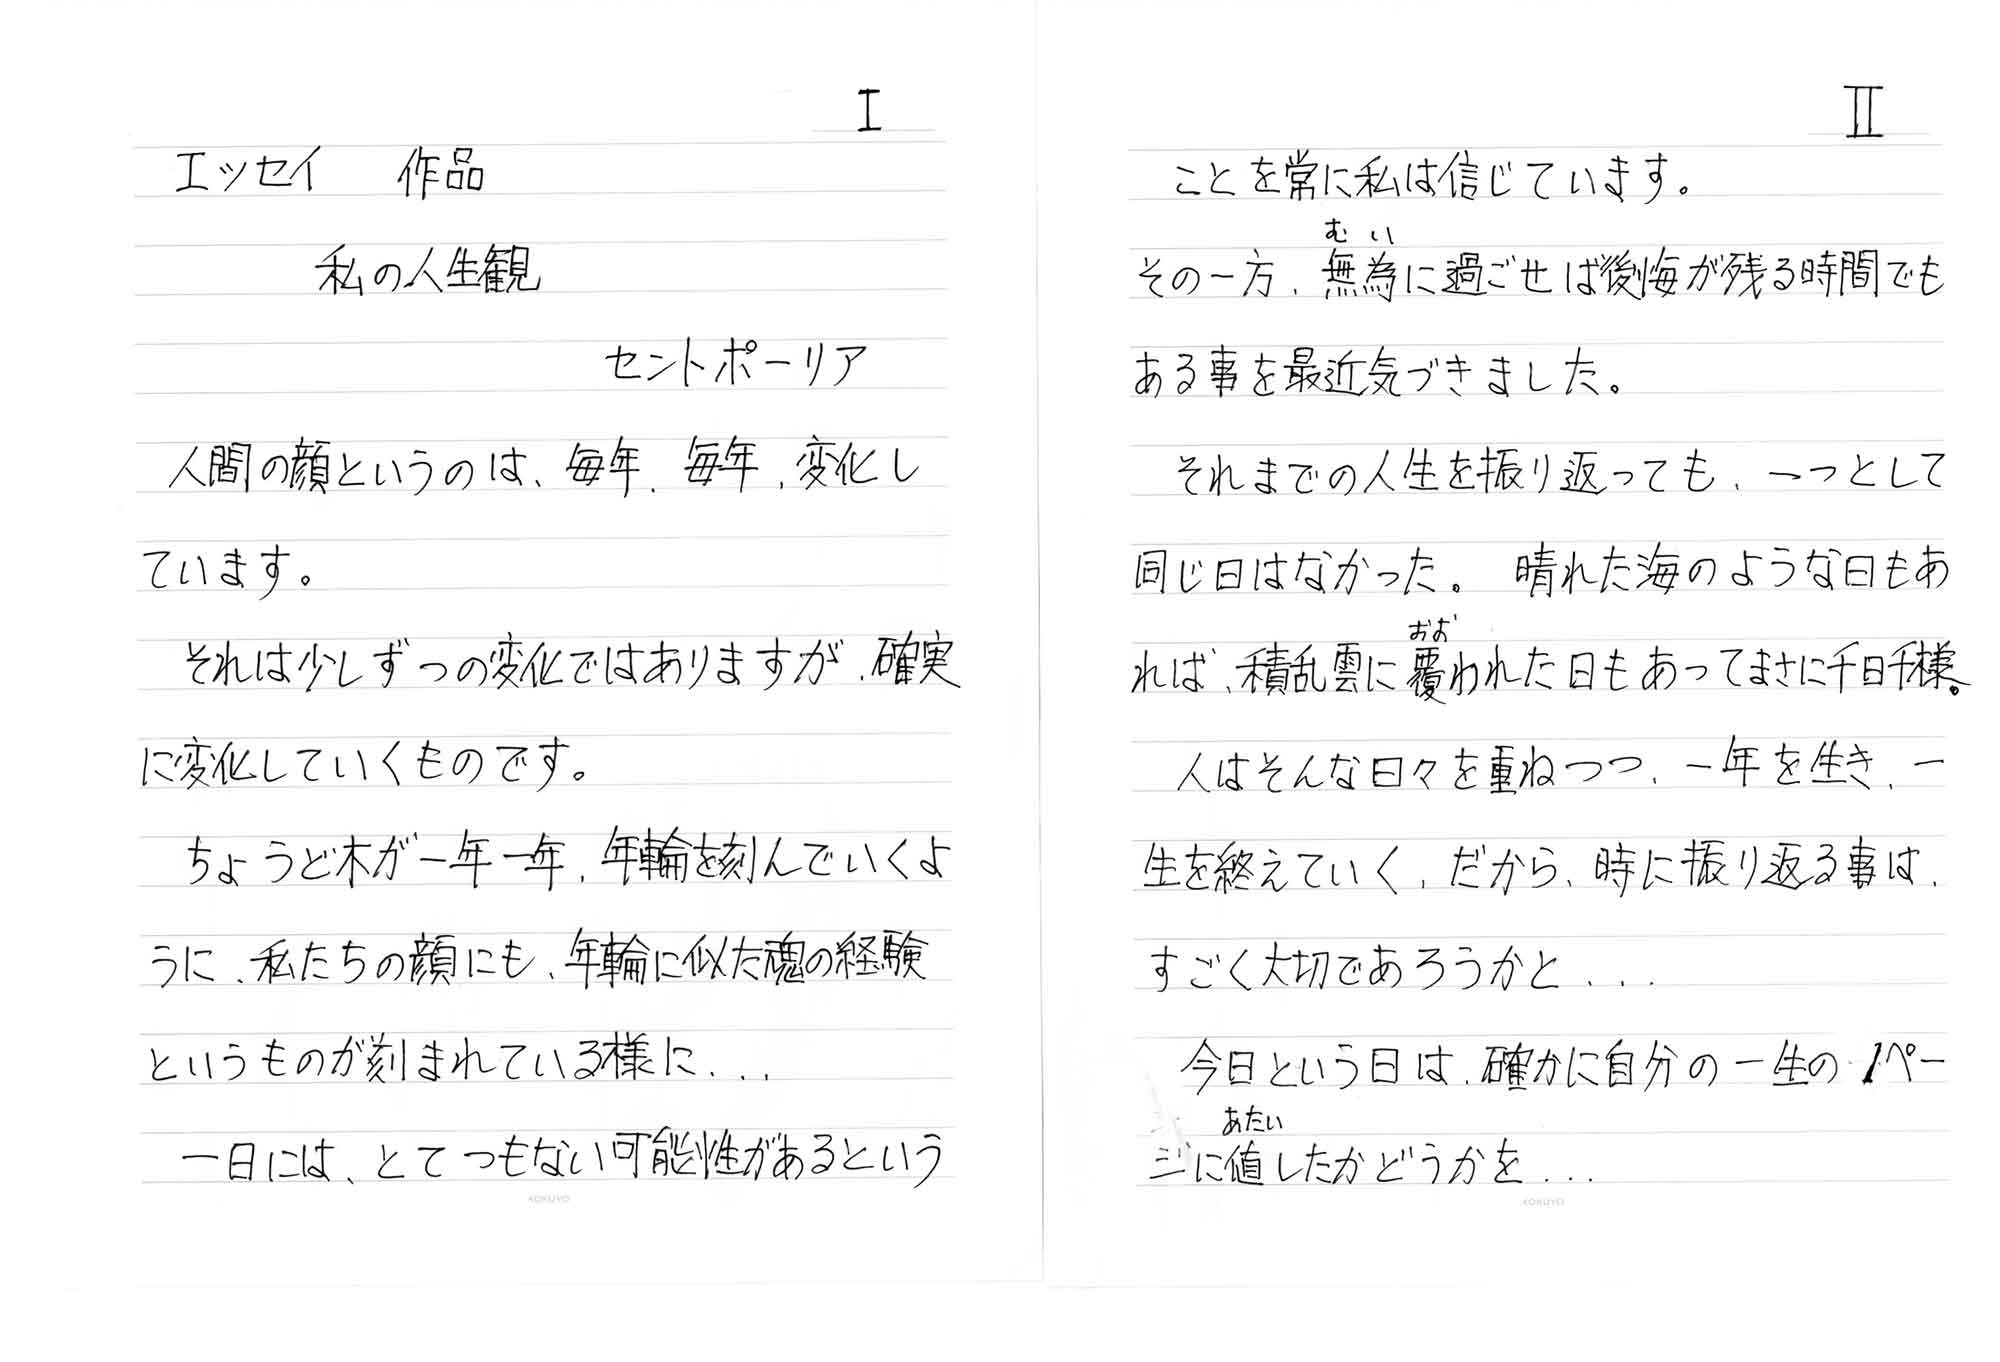 I
エッセイ 作品
私の人生観
セントポーリア
人間の顔というのは、毎年、毎年、変化し
ています。
それは少しずつの変化ではありますが、確実
に変化していくものです。
ちょうど木が一年一年、年輪を刻んでいくよ
うに、私たちの顔にも、年輪に似た魂の経験
というものが刻まれている様に...
一日には、とてつもない可能性があるという
KOKUYO
II
ことを常に私は信じています。
むい
その一方、無為に過ごせば後悔が残る時間でも
ある事を最近気づきました。
それまでの人生を振り返っても、一つとして
同じ日はなかった。 晴れた海のような日もあ
おお
れば、積乱雲に覆われた日もあってまさに千日千様。
人はそんな日々を重ねつつ、一年を生き、一
生を終えていく、だから、時に振り返る事は、
すごく大切であろうかと...
今日という日は、確かに自分の一生の1ペー
あたい
ジに値したかどうかを...
KOKUYO